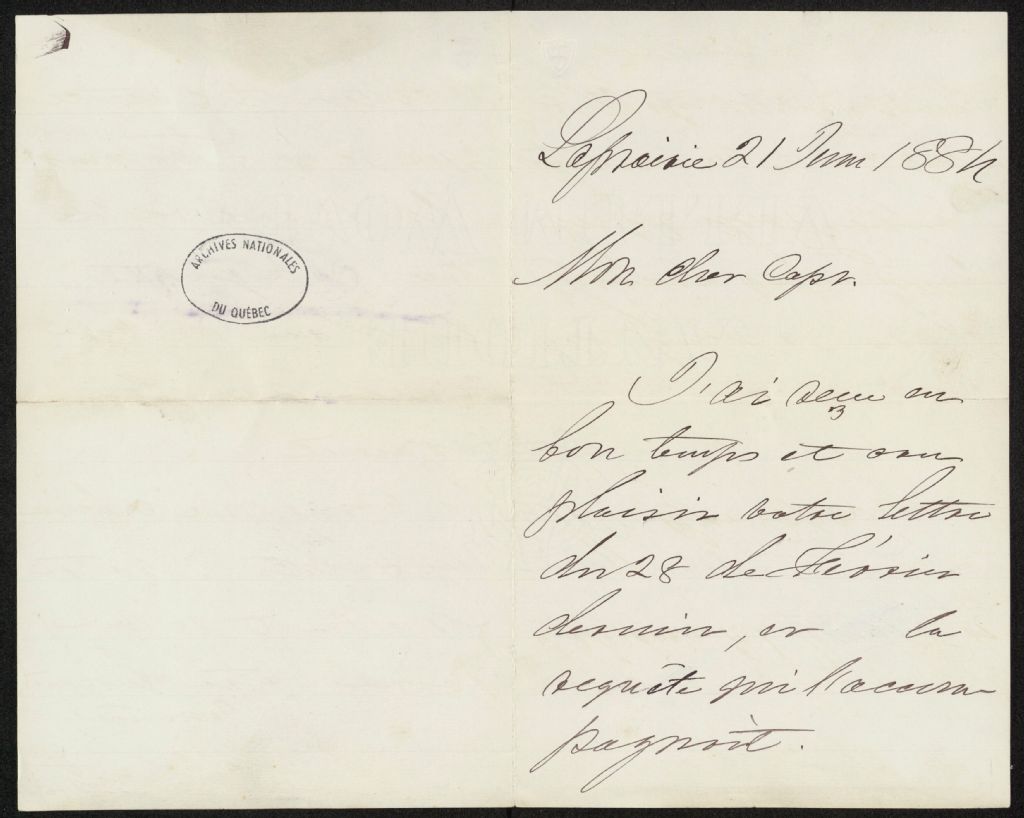 ARCHIVES NATIONALES
DU QUÉBEC
Laprairie 21 Juin 1884
Mon cher Capt.
J'ai reçu en
bon temps et avec
plaisir votre lettre
du 28 de Février
dernier, et la
requête qui l'accom
pagnait.